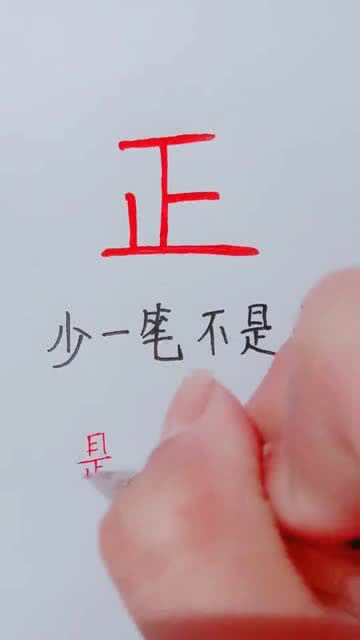 正
少一笔不是
是